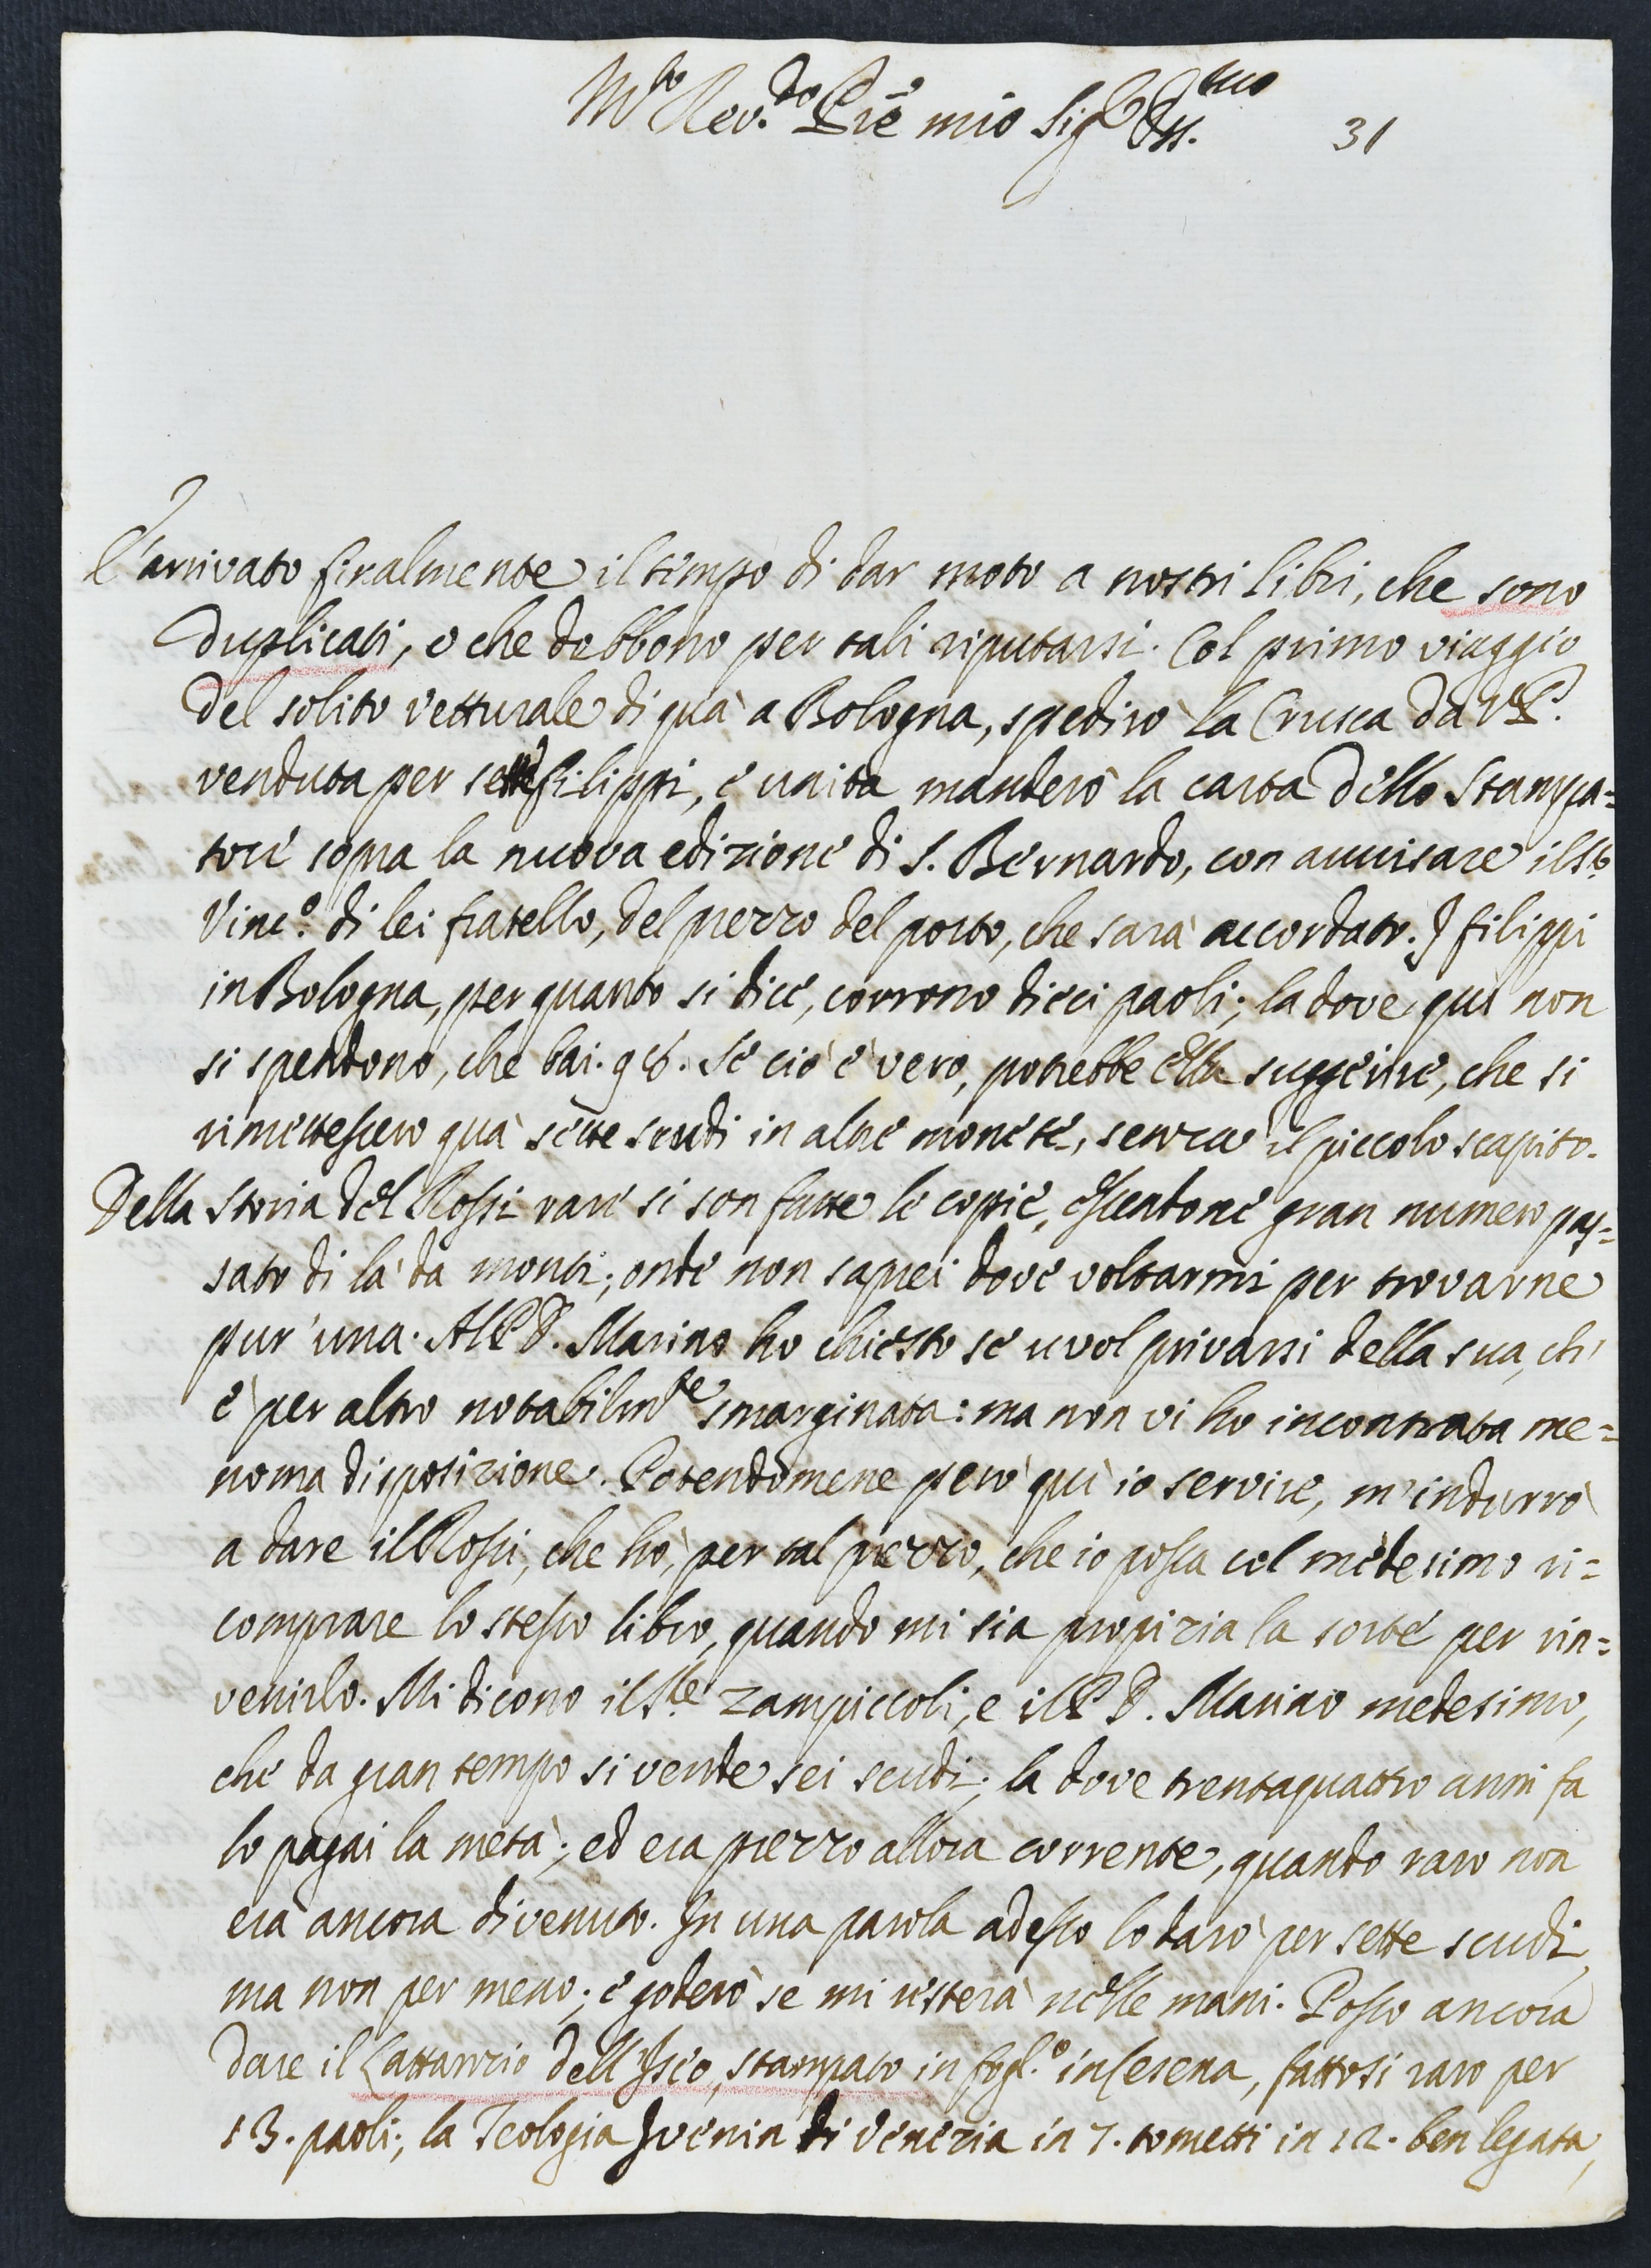 M.to Rev.do Pre mio Sig.r Oss.mo
31
E' arrivato finalmente il tempo di dar moto a nostri libri, che sono
duplicati, o che debbono per tali riputarsi. Col primo viaggio
del solito vetturale di quà a Bologna, spedirò la Crusca da V.P.
venduta per sette filippi, e unita manderò la carta dello Stampa=
tore sopra la nuova edizione di S. Bernardo, con avvisare il Sig.
Vinc.o di lei fratello, del prezzo del porto, che sarà accordato. I filippi
in Bologna, per quanto si dice, corrono dieci paoli; la dove quì non
si spendono, che bai. 98. Se ciò è vero, potrebbe Ella suggerire, che si
rimettessero quà sette scudi in altre monete, senza il piccolo scapito.
Della Storia del Rossi rare si son fatte le copie, essendone gran numero pas=
sato di là da monti; onde non saprei dove voltarmi per trovarne
pur' una. Al P. D. Marino ho chiesto se vuol privarsi della sua, ch'
è per altro notabilm.te smarginata: ma non vi ho incontrata me=
noma disposizione. Potendomene però quì io servire, m'indurrò
a dare il Rossi, che hò, per tal prezzo, che io possa col medesimo ri=
comprare lo stesso libro, quando mi sia propizia la sorte per rin=
venirlo. Mi dicono il S.re Zampiccoli, e il P. D. Marino medesimo,
che da gran tempo si vende sei scudi; la dove trentaquattro anni fa
lo pagai la metà; ed era prezzo allora corrente, quando raro non
era ancora divenuto. In una parola adesso lo darò per sette scudi,
ma non per meno; e goderò se mi resterà nelle mani. Posso ancora
dare il Lattanzio dell'Iseo, stampato in fogl.o in Cesena, fattosi raro per
13. paoli; la Teologia Juenin di Venezia in 7. tometti in 12. ben legata,